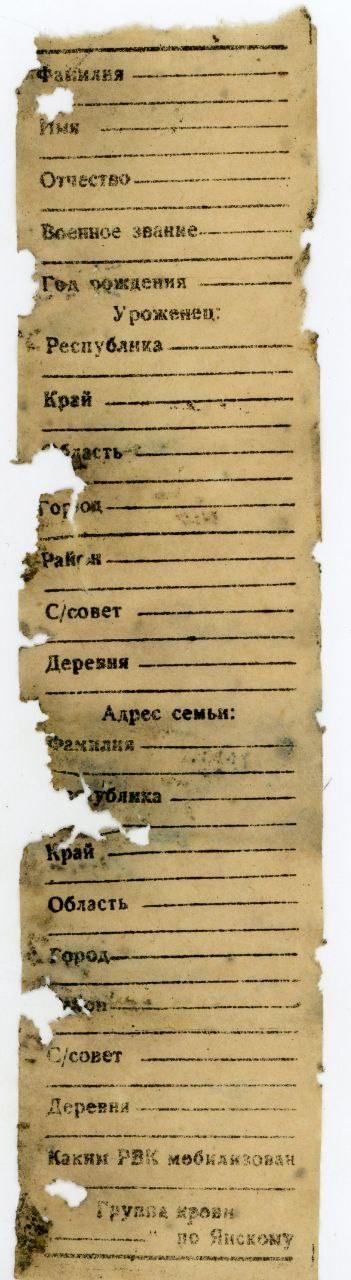 Фамилия
Имя
Отчество
Военное звание
Год рождения
Уроженец:
Республика
Край
Область
Город
Район
С/совет
Деревня
Адрес семьи:
Фамилия
ублика
Край
Область
Город
йон
С/совет
Деревня
Каким РВК мобилизован
Группа крови
" по Янскому